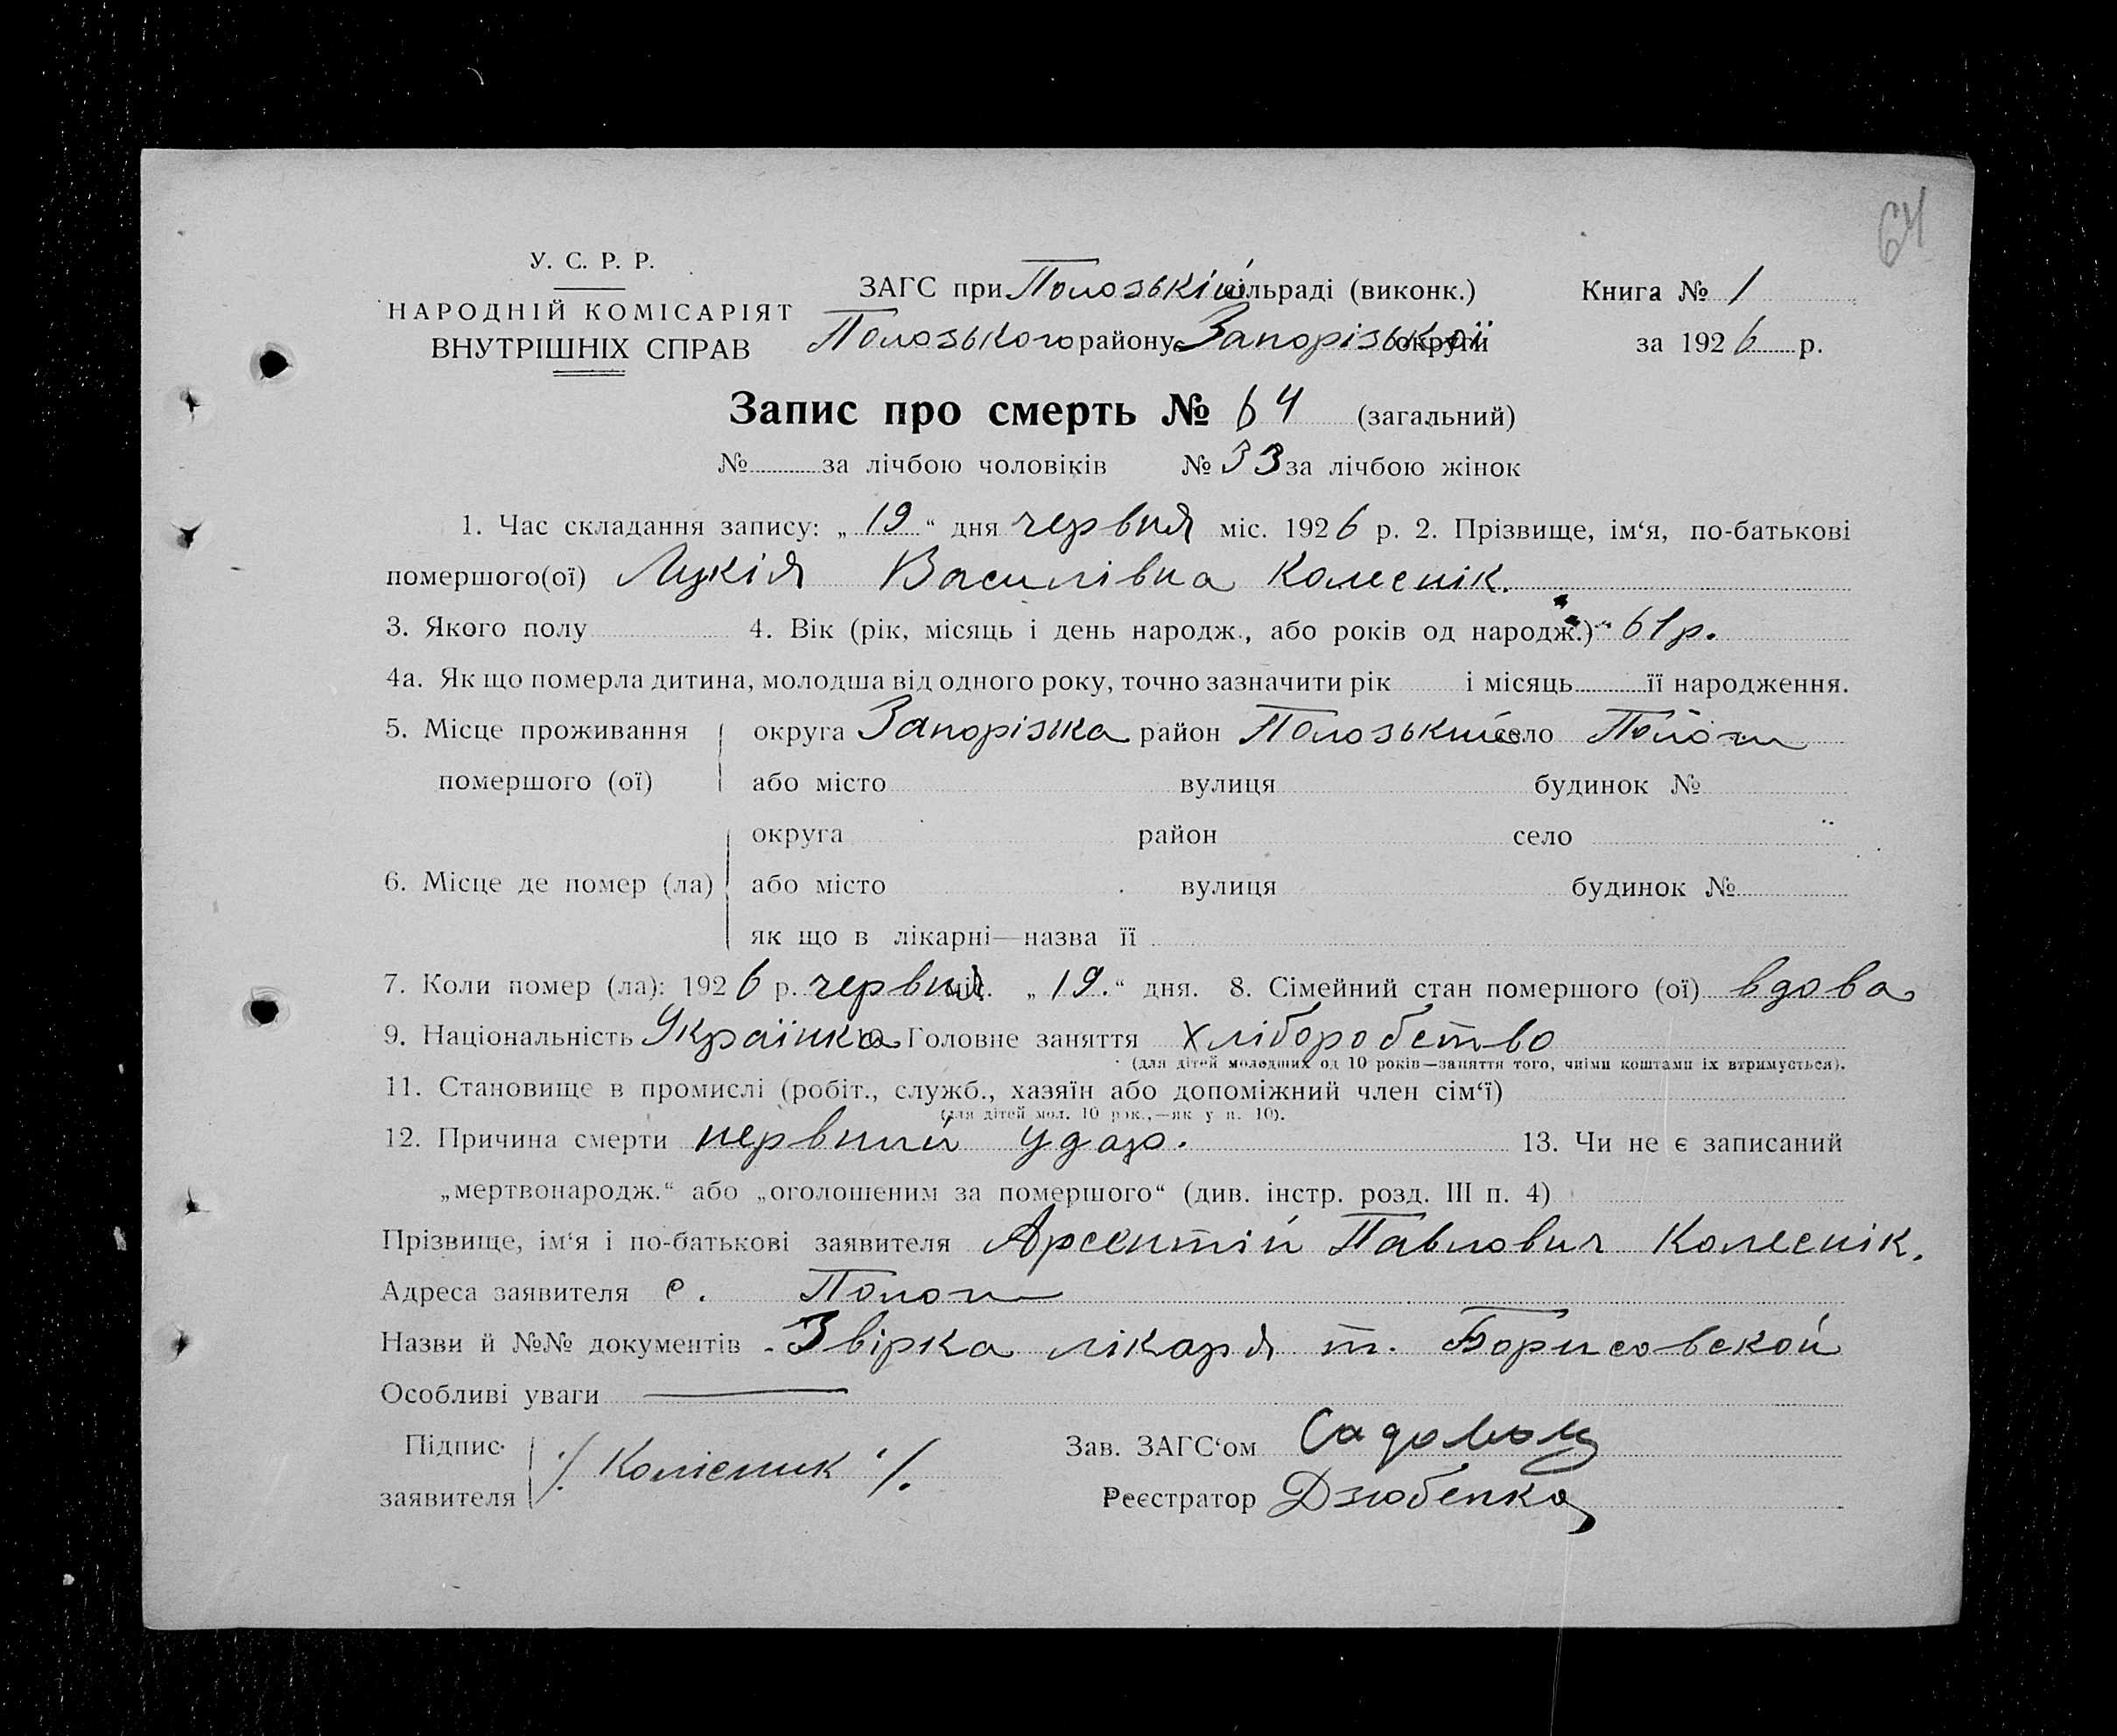 64
У. С. Р. Р.
НАРОДНІЙ КОМІСАРІЯТ
ВНУТРІШНІХ СПРАВ
ЗАГС при Полозькій сільраді (виконк.)
Полозького району Запорізької округи
Книга № 1
за 1926 р.
Запис про смерть № 64 (загальний)
№ за лічбою чоловіків № 33 за лічбою жінок
1. Час складання запису: „19“ дня червня міс. 1926 р. 2. Прізвище, ім‘я, по-батькові
помершого(ої) Лукія Василівна Колеснік.
3. Якого полу 4. Вік (рік, місяць і день народж., або років од народж.) 61 р.
4а. Як що померла дитина, молодша від одного року, точно зазначити рік і місяць її народження.
5. Місце проживання округа Запорізка район Полозький село Пологи
помершого (ої) або місто вулиця будинок №
округа район село
6. Місце де помер (ла) або місто вулиця будинок №
як що в лікарні—назва її
7. Коли помер (ла): 1926 р. червня міс. „19.“ дня. 8. Сімейний стан помершого (ої) вдова
9. Національність Українка Головне заняття хліборобство
(для дітей молодших од 10 років—заняття того, чиїми коштами їх втримується).
11. Становище в промислі (робіт., служб., хазяїн або допоміжний член сім‘ї)
(для дітей мол. 10 рок.,—як у п. 10).
12. Причина смерти нервний удар. 13. Чи не є записаний
„мертвонародж.“ або „оголошеним за помершого“ (див. інстр. розд. III п. 4)
Прізвище, ім‘я і по-батькові заявителя Арсентій Павлович Колеснік.
Адреса заявителя с. Пологи
Назви й №№ документів - Звірка лікаря т. Борисовской
Особливі уваги —
Підпис заявителя ·/ Колісник ·/.
Зав. ЗАГС‘ом
Реєстратор Дзюбенко